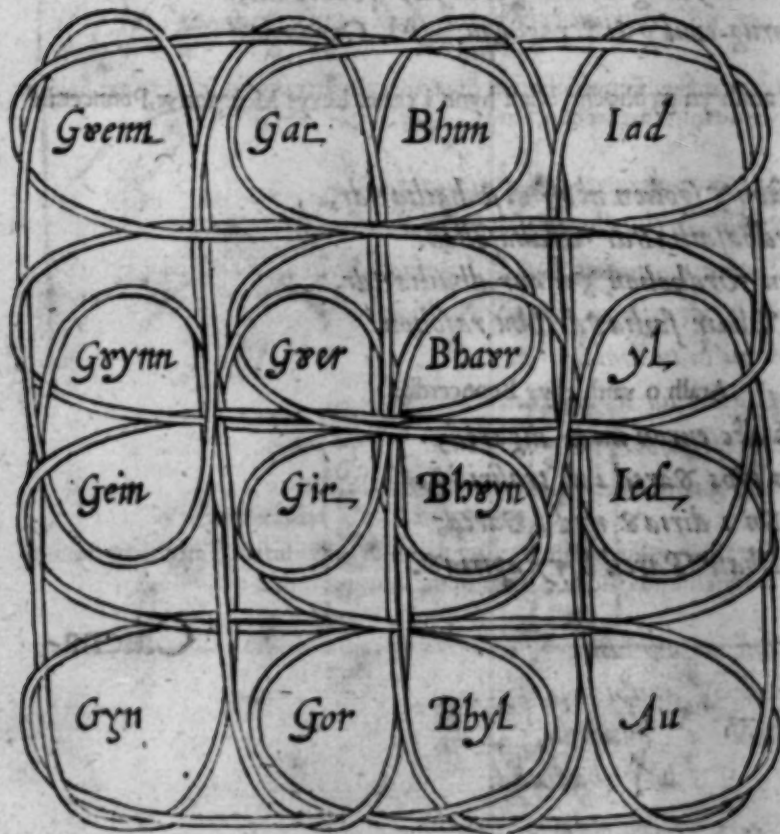 Gȣenn Gar Bhun Iad
Gȣynn Gȣer Bhaȣr yl
Gein Gir Bhȣyn Ied
Gyn Gor Bhyl Au